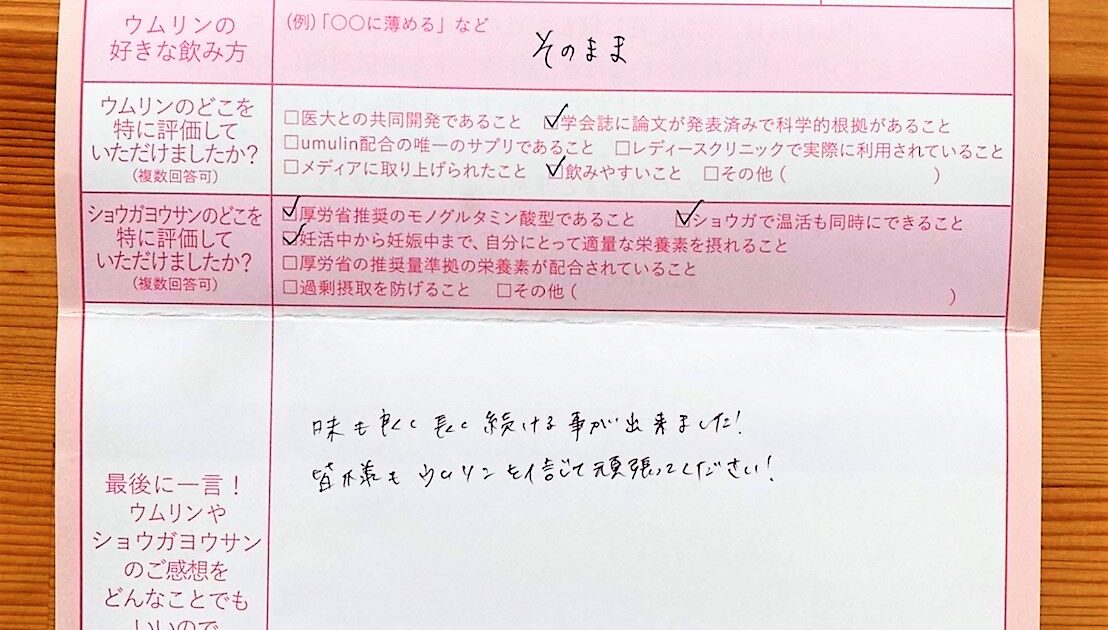 ウムリンの
好きな飲み方
(例)「〇〇に薄める」など
そのまま
ウムリンのどこを
特に評価して
いただけましたか?
(複数回答可)
□医大との共同開発であること ☑学会誌に論文が発表済みで科学的根拠があること
□umulin配合の唯一のサプリであること □レディースクリニックで実際に利用されていること
□メディアに取り上げられたこと ☑飲みやすいこと □その他( )
ショウガヨウサンのどこを
特に評価して
いただけましたか?
(複数回答可)
☑厚労省推奨のモノグルタミン酸型であること ☑ショウガで温活も同時にできること
☑妊活中から妊娠中まで、自分にとって適量な栄養素を摂れること
□厚労省の推奨量準拠の栄養素が配合されていること
□過剰摂取を防げること □その他( )
味も良くて長く続ける事が出来ました!
皆様も ウムリンを信じて頑張ってください!
最後に一言!
ウムリンや
ショウガヨウサン
のご感想を
どんなことでも
いいので